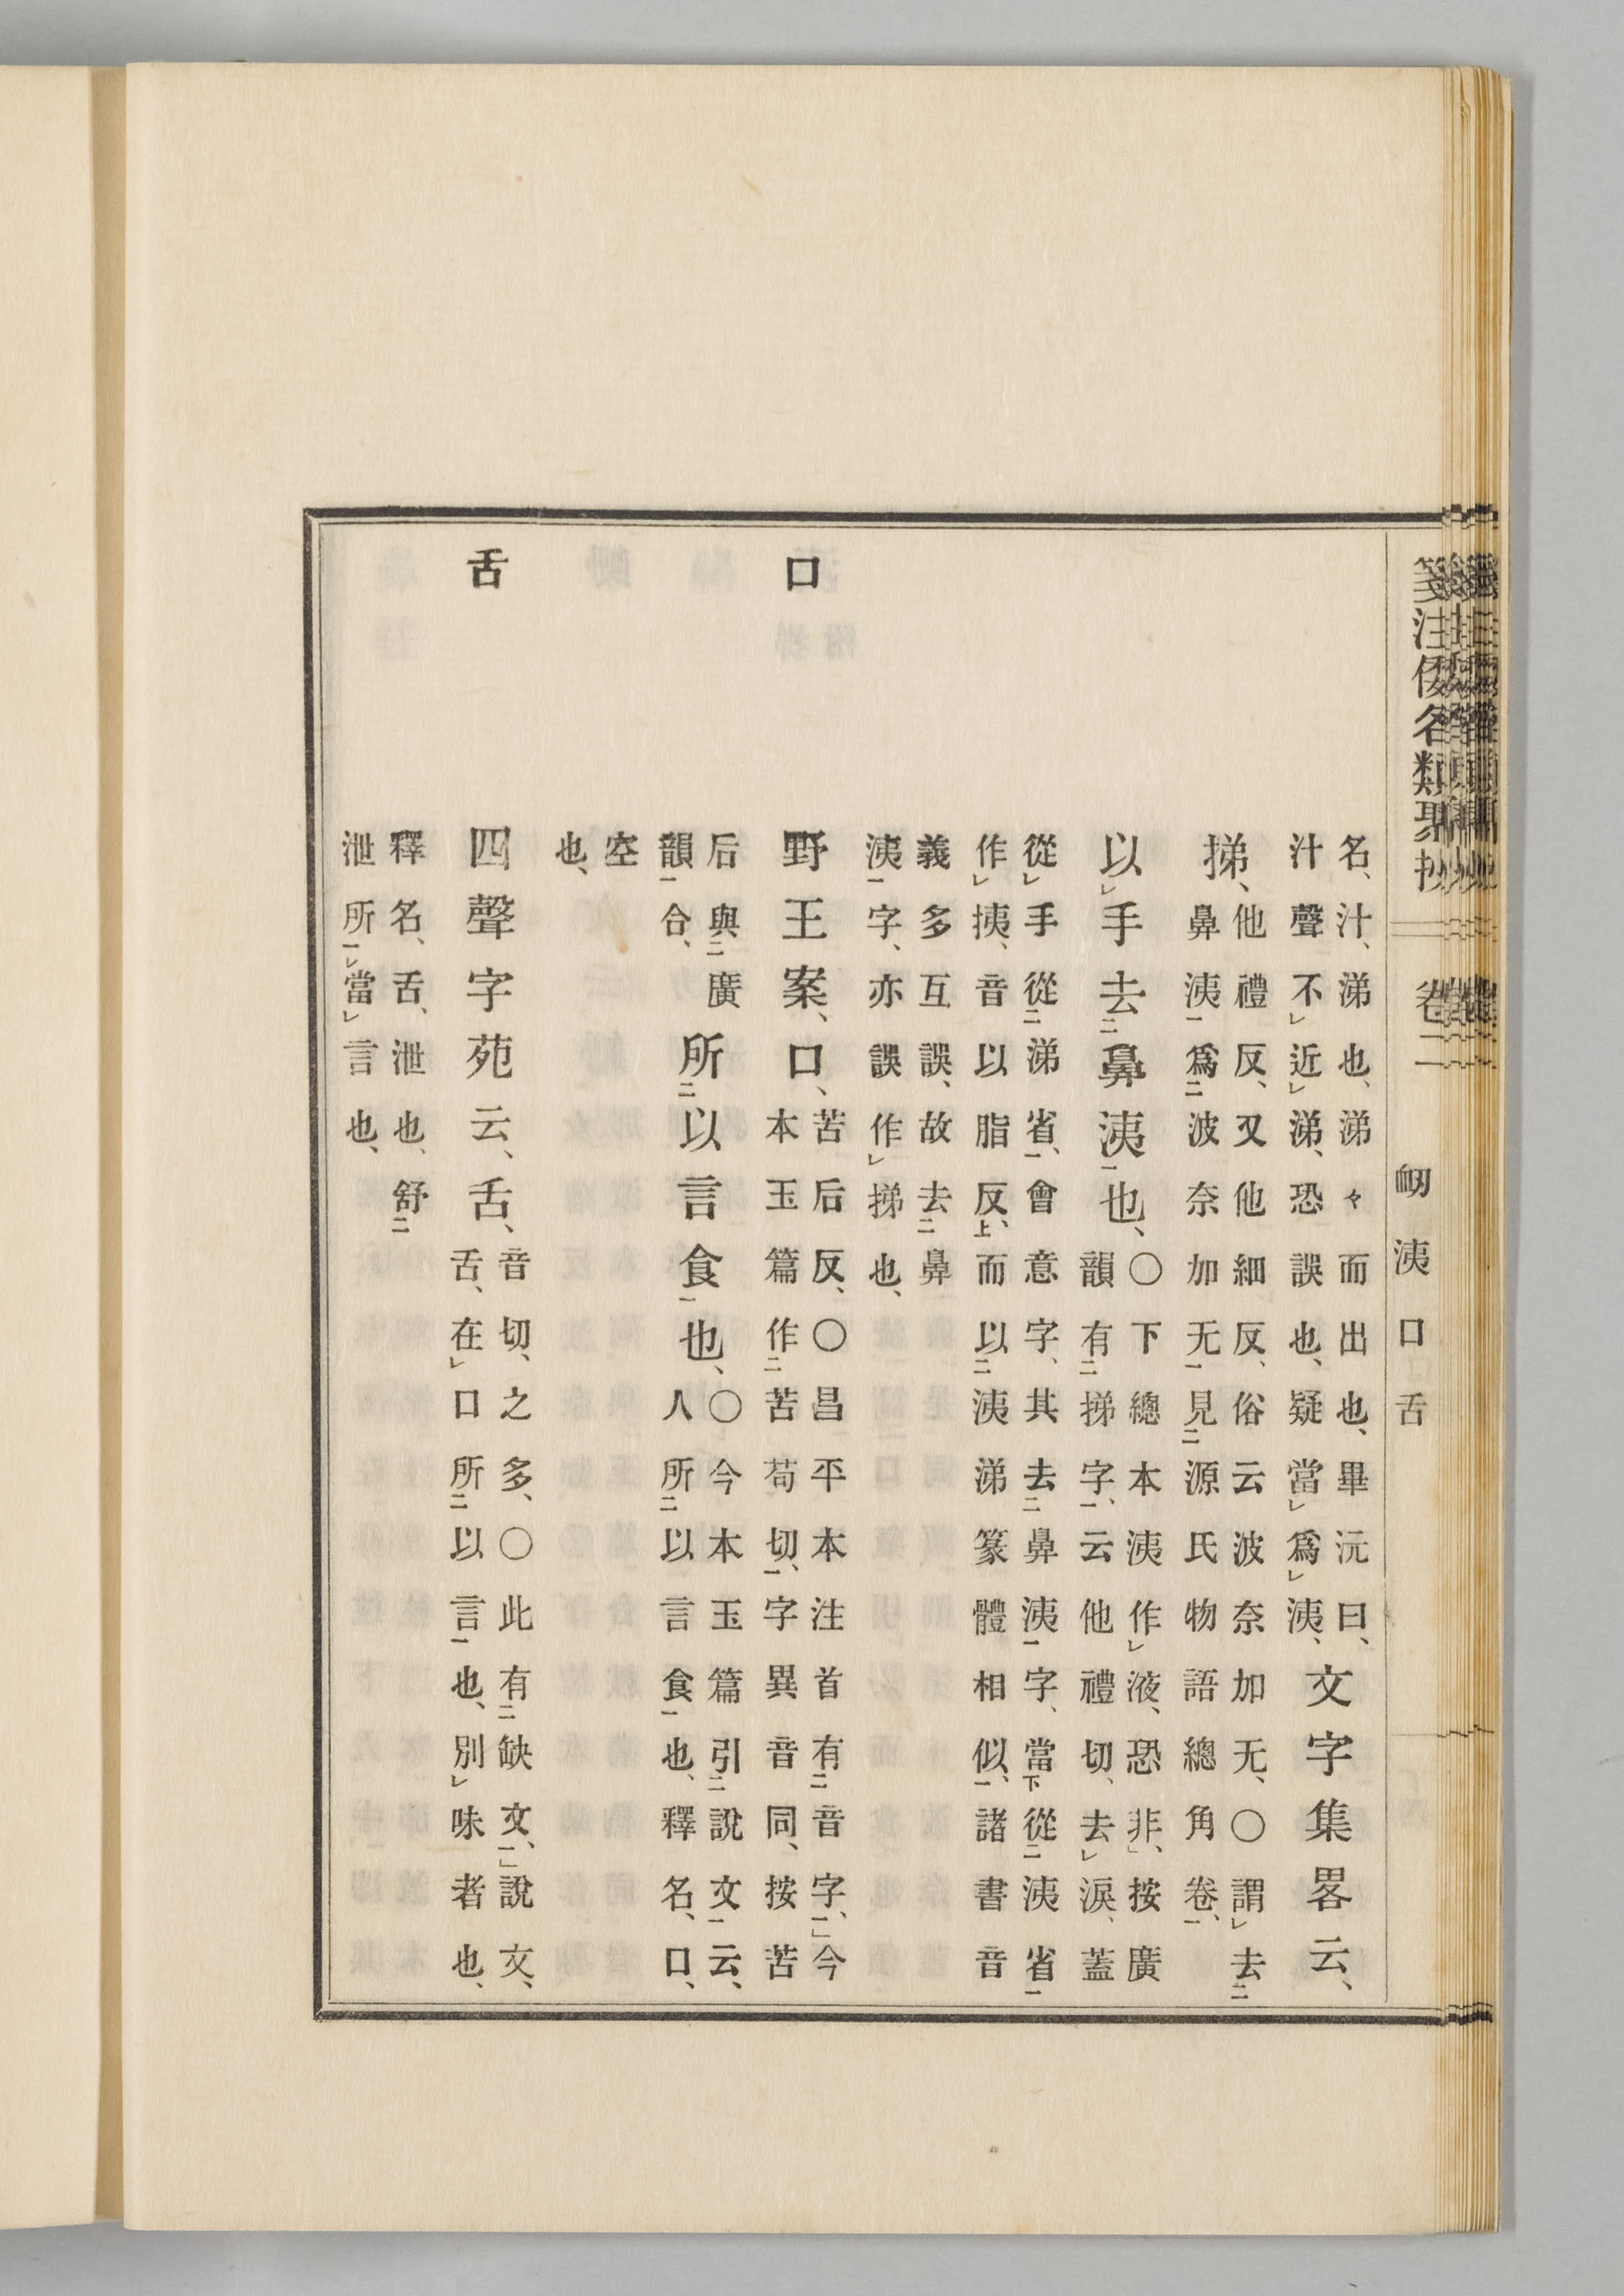 箋注倭名類聚抄 卷二 衂洟口舌
名、汁、涕也、涕々而出也、畢沅曰、
汁聲不近涕、恐誤也、疑當爲洟、
文字集畧云、
挮、
他禮反、又他細反、俗云波奈加无、〇謂去
鼻洟爲波奈加无見源氏物語總角卷、
以手去鼻洟也、
〇下總本洟作液、恐非、按廣
韻有挮字、云他禮切、去淚、蓋
從手從涕省、會意字、其去鼻洟字、當從洟省
作挗、音以脂反、而以洟涕篆體相似、諸書音
義多互誤、故去鼻
洟字、亦誤作挮也、
口
野王案、口、
苦后反、〇昌平本注首有音字、今
本玉篇作苦苟切、字異音同、按苦
后與廣
韻合、
所以言食也、
〇今本玉篇引說文云、
人所以言食也、釋名、口、
空
也、
舌
四聲字苑云、舌、
音切、之多、〇此有缺文、說文、
舌、在口所以言也、別味者也、
釋名、舌、泄也、舒
泄所當言也、